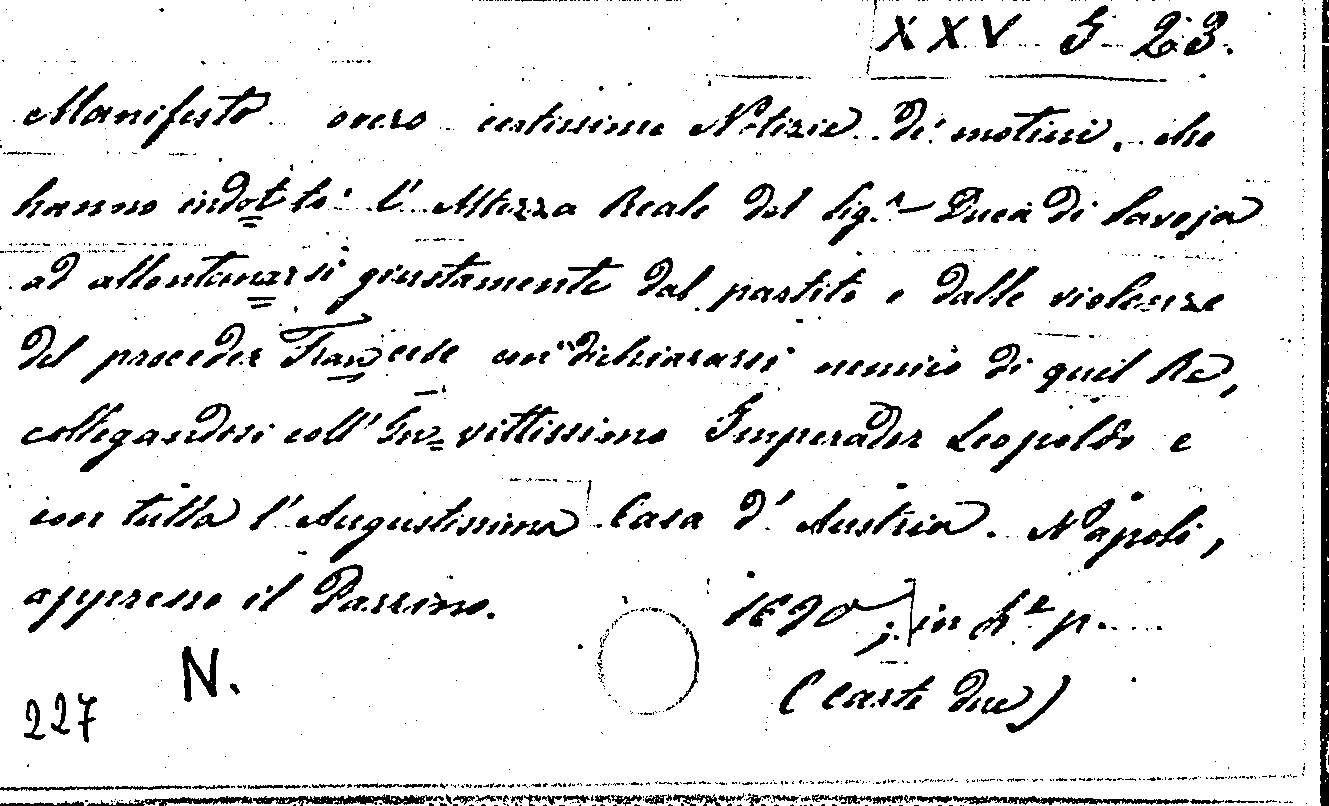 XXV G 23.
Manifesto overo certissime Notizie de' motivi, che
hanno indotto l'Altezza Reale del Sig.r Duca di Savoja
ad allontanarsi giustamente dal partito e dalle violenze
del proceder Francese con dichiararsi nemico di quel Re,
collegandosi coll' Invittissimo Imperador Leopoldo e
con tutta l'Augustissima Casa d'Austria. Napoli,
appresso il Parrino. 1690; in 4º p.
(carte due)
N.
227